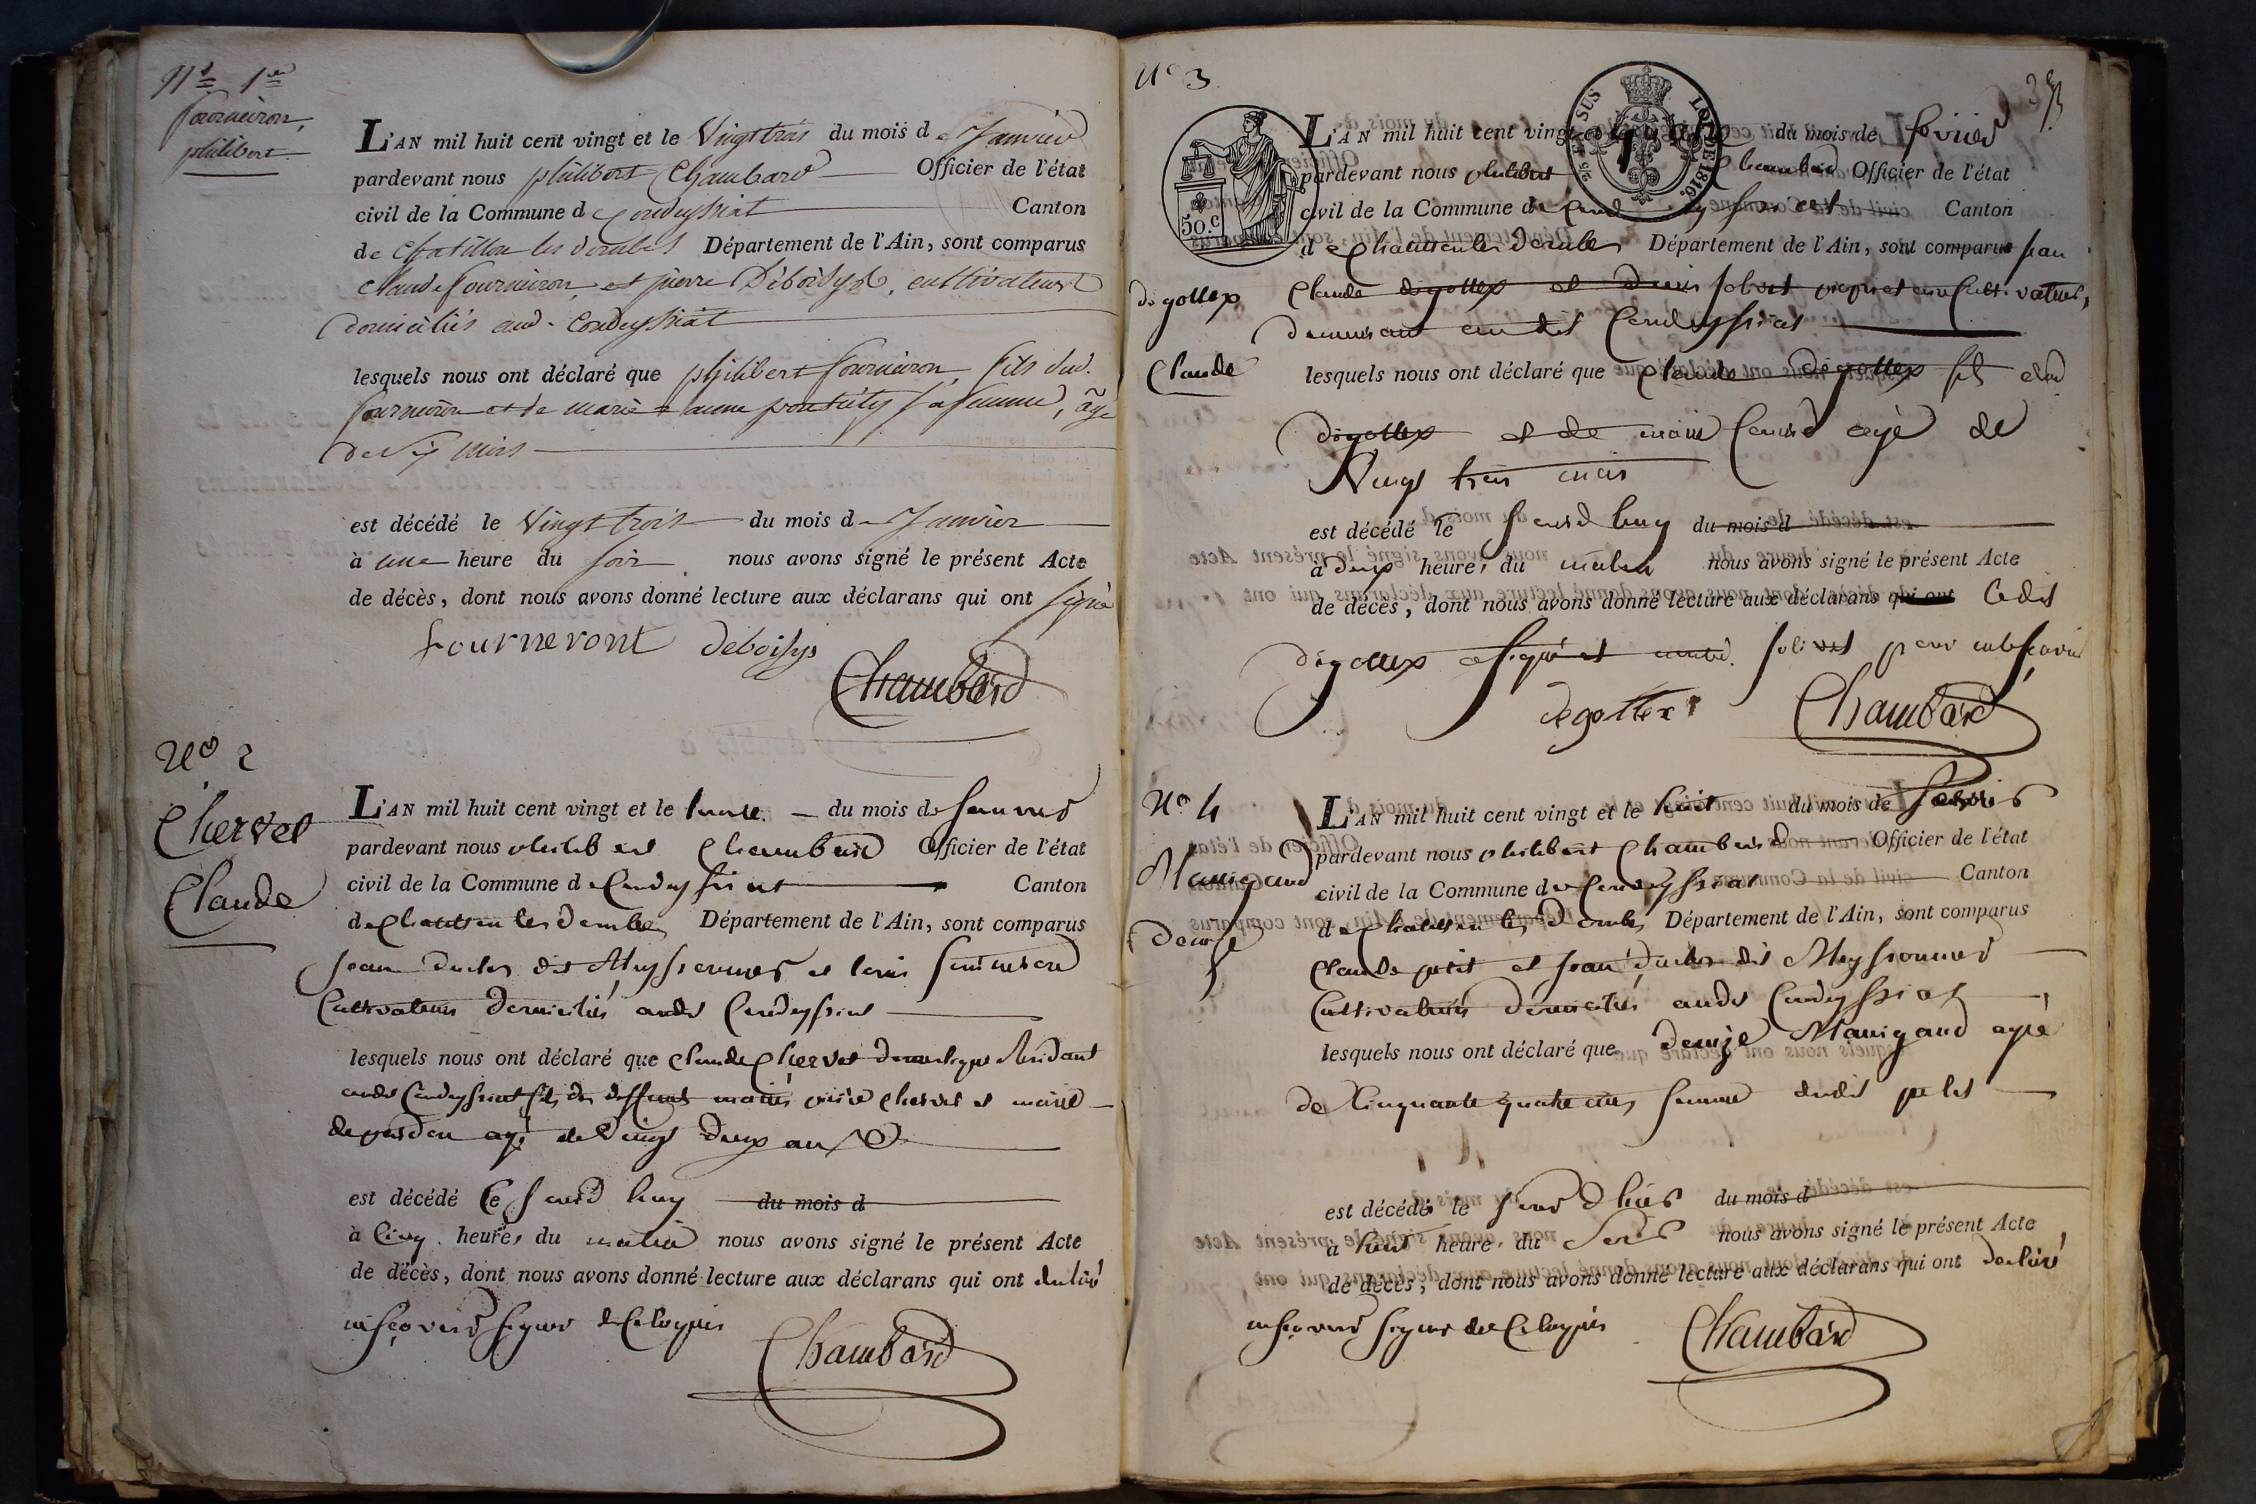 N° 1er
fourneiron,
philibert
L'AN mil huit cent vingt et le Vingt trois du mois de Janvier
pardevant nous philibert Chambard Officier de l'état
civil de la Commune de Condeyssiat Canton
de Chatillon les dombes Département de l'Ain, sont comparus
Claude fourneiron, et pierre Déboisys, cultivateurs
domiciliés aud. Condeyssiat
lesquels nous ont déclaré que philibert fourneiron, fils dud.
fourneiron et de marie sa femme, âgé
de mois
est décédé le Vingt trois du mois de Janvier
à une heure du soir nous avons signé le présent Acte
de décès, dont nous avons donné lecture aux déclarans qui ont signé
fourneront deboisys
Chambard
N° 2
Chervet
Claude
L'AN mil huit cent vingt et le du mois de
pardevant nous philibert Chambard Officier de l'état
civil de la Commune de Condeyssiat Canton
de Chatillon les dombes Département de l'Ain, sont comparus
Jean duclos dit Meyssonnier et
Cultivateurs domiciliés audit Condeyssiat
lesquels nous ont déclaré que Claude Chervet domestique Résidant
audit Condeyssiat fils des deffunts mariés pierre Chervet et marie
agé de Vingt deux ans
est décédé le jourd huy du mois d
à Cinq heures du matin nous avons signé le présent Acte
de décès, dont nous avons donné lecture aux déclarans qui ont declaré
ne sçavoir signer de Ce Requis
Chambard
N° 3
degottex
Claude
EN SUS
LOI DE 1816.
50.c
L'AN mil huit cent vingt et le du mois de fevrier
pardevant nous philibert Chambard Officier de l'état
civil de la Commune de Condeyssiat Canton
de Chatillon les dombes Département de l'Ain, sont comparus jean
Claude degottex et Cultivateurs,
demeurant au dit Condeyssiat
lesquels nous ont déclaré que Claude degottex fils dud
degottex et de marie agé de
Vingt trois mois
est décédé le jourd huy du mois d
à deux heures du matin nous avons signé le présent Acte
de décès, dont nous avons donné lecture aux déclarans qui ont Ledit
degottex a signé et non pour ne sçavoir
degottex Chambard
N° 4
Manigand
denise
L'AN mil huit cent vingt et le huit du mois de fevrier
pardevant nous philibert Chambard Officier de l'état
civil de la Commune de Condeyssiat Canton
de Chatillon les dombes Département de l'Ain, sont comparus
Claude petit et jean duclos dit Meyssonnier
Cultivateurs domiciliés audit Condeyssiat
lesquels nous ont déclaré que denise Manigand agée
de Cinquante quatre ans femme dudit petit
est décédée le jour d hier du mois d
à huit heure du Soir nous avons signé le présent Acte
de décès, dont nous avons donné lecture aux déclarans qui ont declaré
ne sçavoir signer de Ce Requis
Chambard